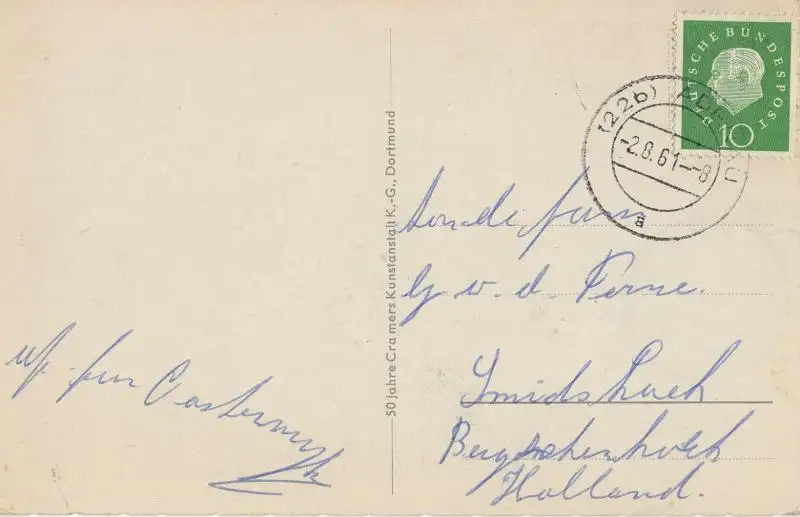 DEUTSCHE BUNDESPOST
10
(22b) ADENAU
-2.8.61--8
a
50 Jahre Cramers Kunstanstalt K.-G., Dortmund
aan de fam
G v. d. Torre.
Smidshoek
Bergschenhoek
Holland.
fam Oosterwijk